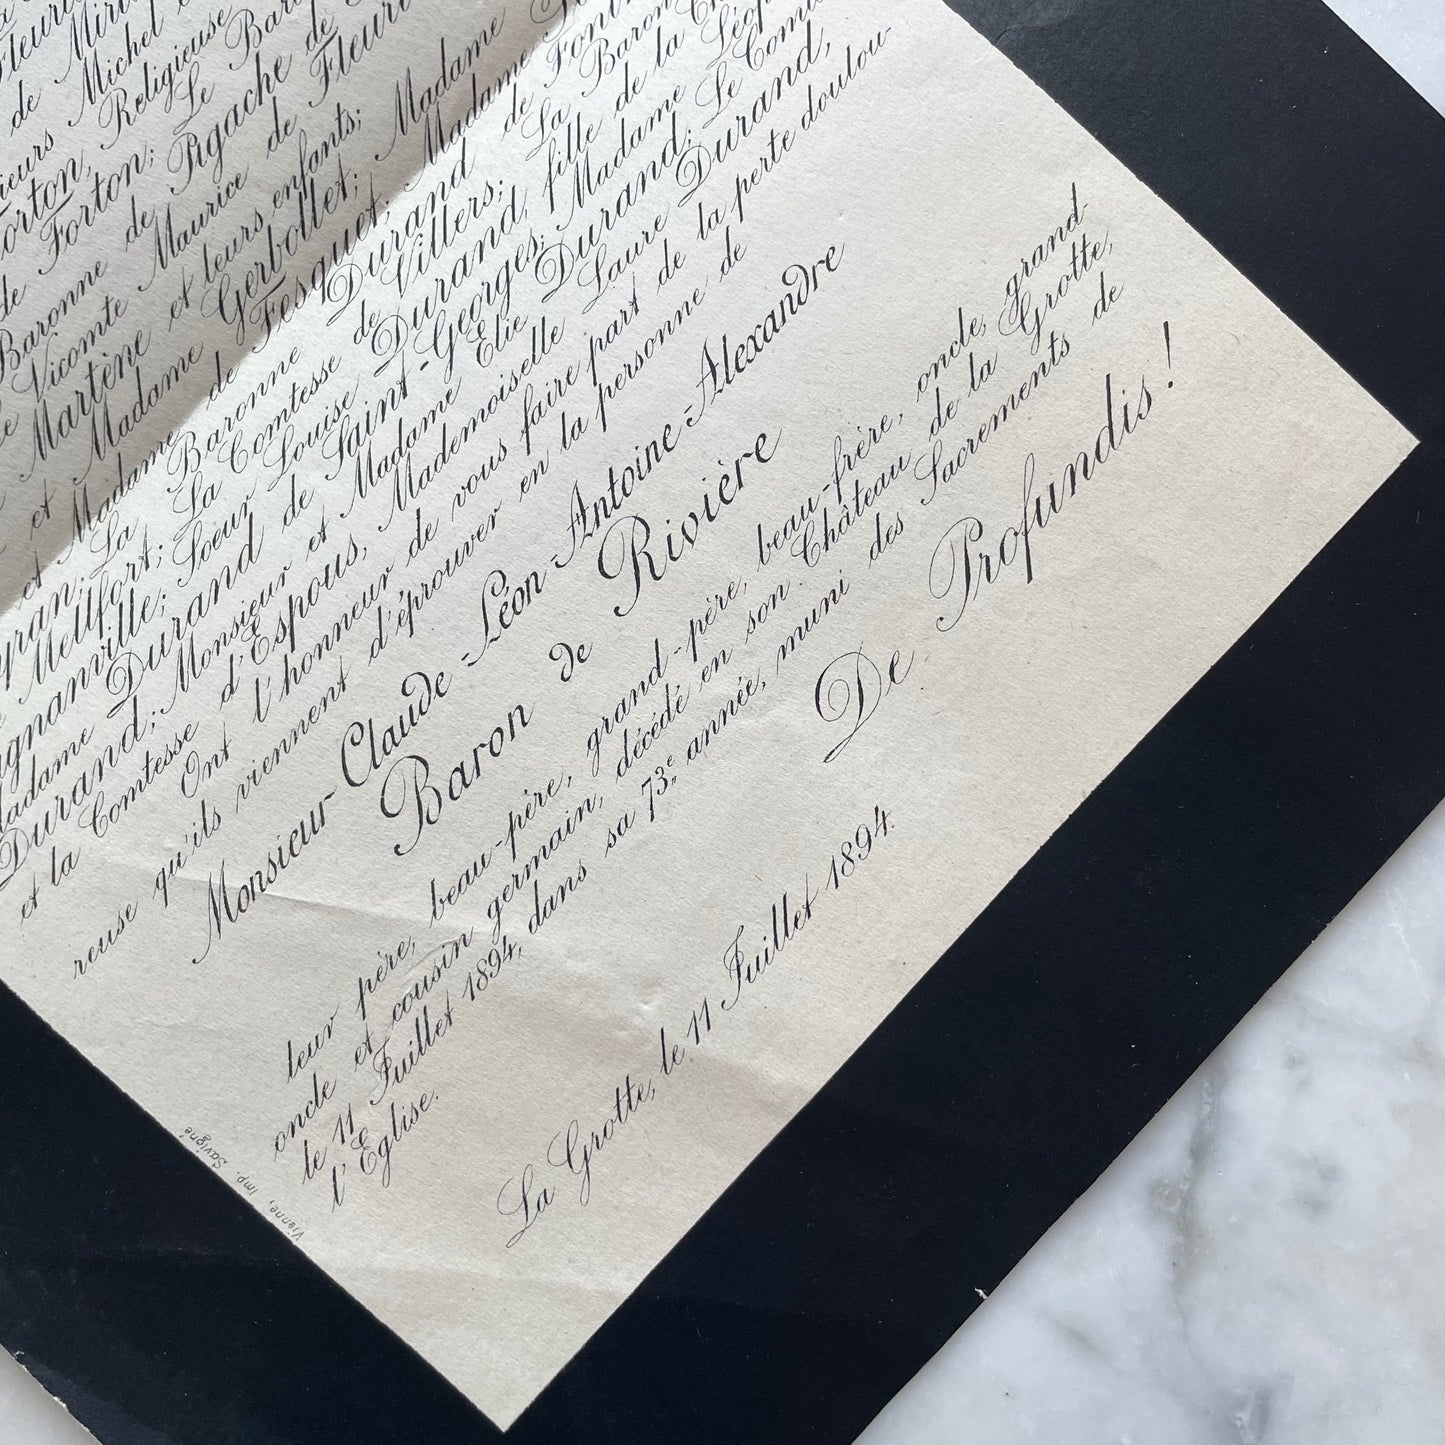 Fleuri
de Miri
sieurs Michel
orton, Religieuse
de Forton; Le Bar
Baronne de Pigache de
Le Vicomte Maurice de Fleuri
Martène et leurs enfants;
et Madame Gerbollet; Madame
et Madame de Fesquet; Madame
yran; La Baronne Durand de Font
Mellfort; La Comtesse de Villers; La Baron
gnanville; Soeur Louise Durand, fille de la
adame Durand de Saint-Georges; Madame Léop
Durand; Monsieur et Madame Elie Durand; Le Comte
et la Comtesse d'Espous, Mademoiselle Laure Durand,
Ont l'honneur de vous faire part de la perte doulou-
reuse qu'ils viennent d'éprouver en la personne de
Monsieur Claude-Léon-Antoine-Alexandre
Baron de Rivière
leur père, beau-père, grand-père, beau-frère, oncle, grand-
oncle et cousin germain, décédé en son Château de la Grotte,
le 11 Juillet 1894, dans sa 73e année, muni des Sacrements de
l'Eglise.
De Profundis!
La Grotte, le 11 Juillet 1894.
Vienne, Imp. Savigné